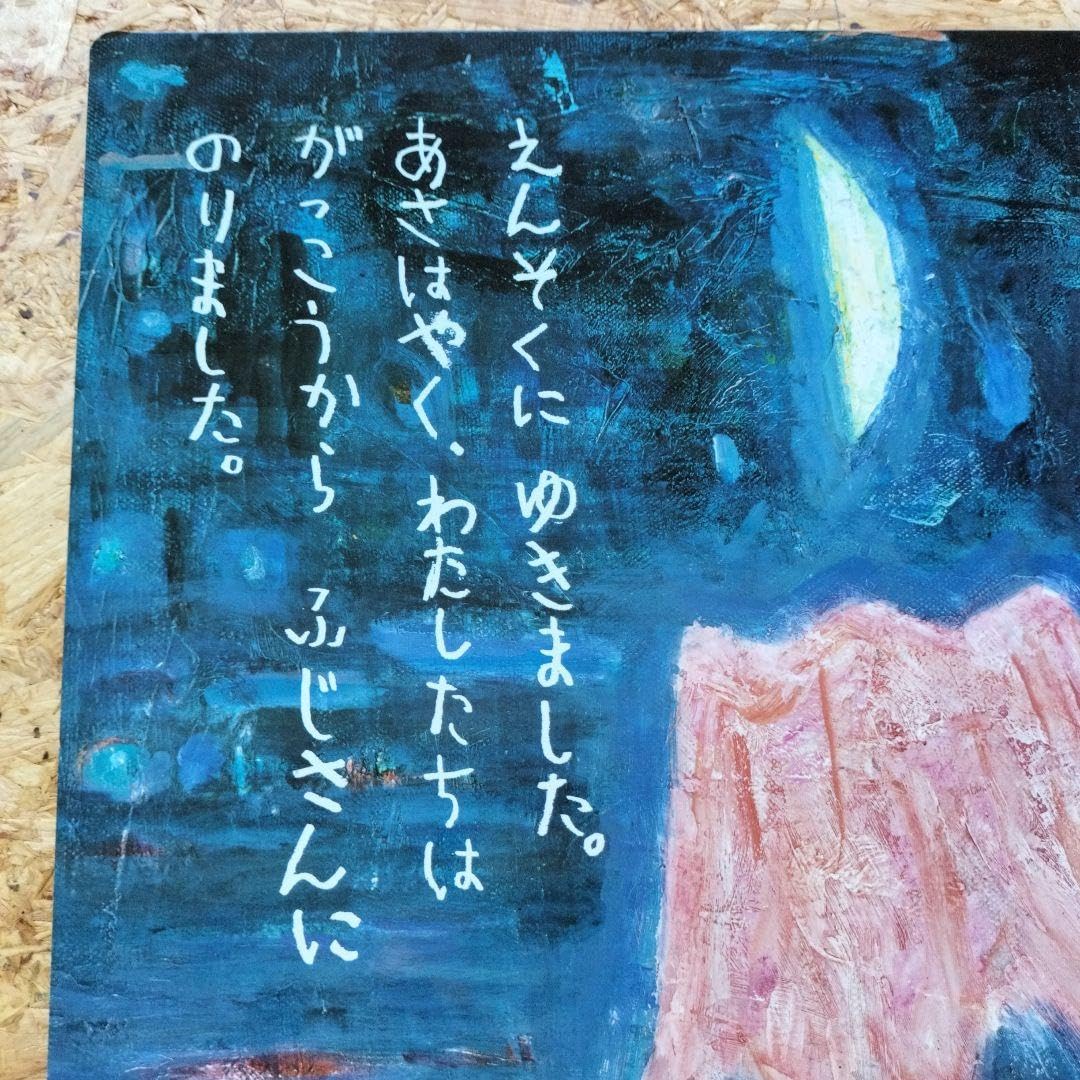 えんそくに ゆきました。
あさはやく、わたしたちは
がっこうから ふじさんに
のりました。